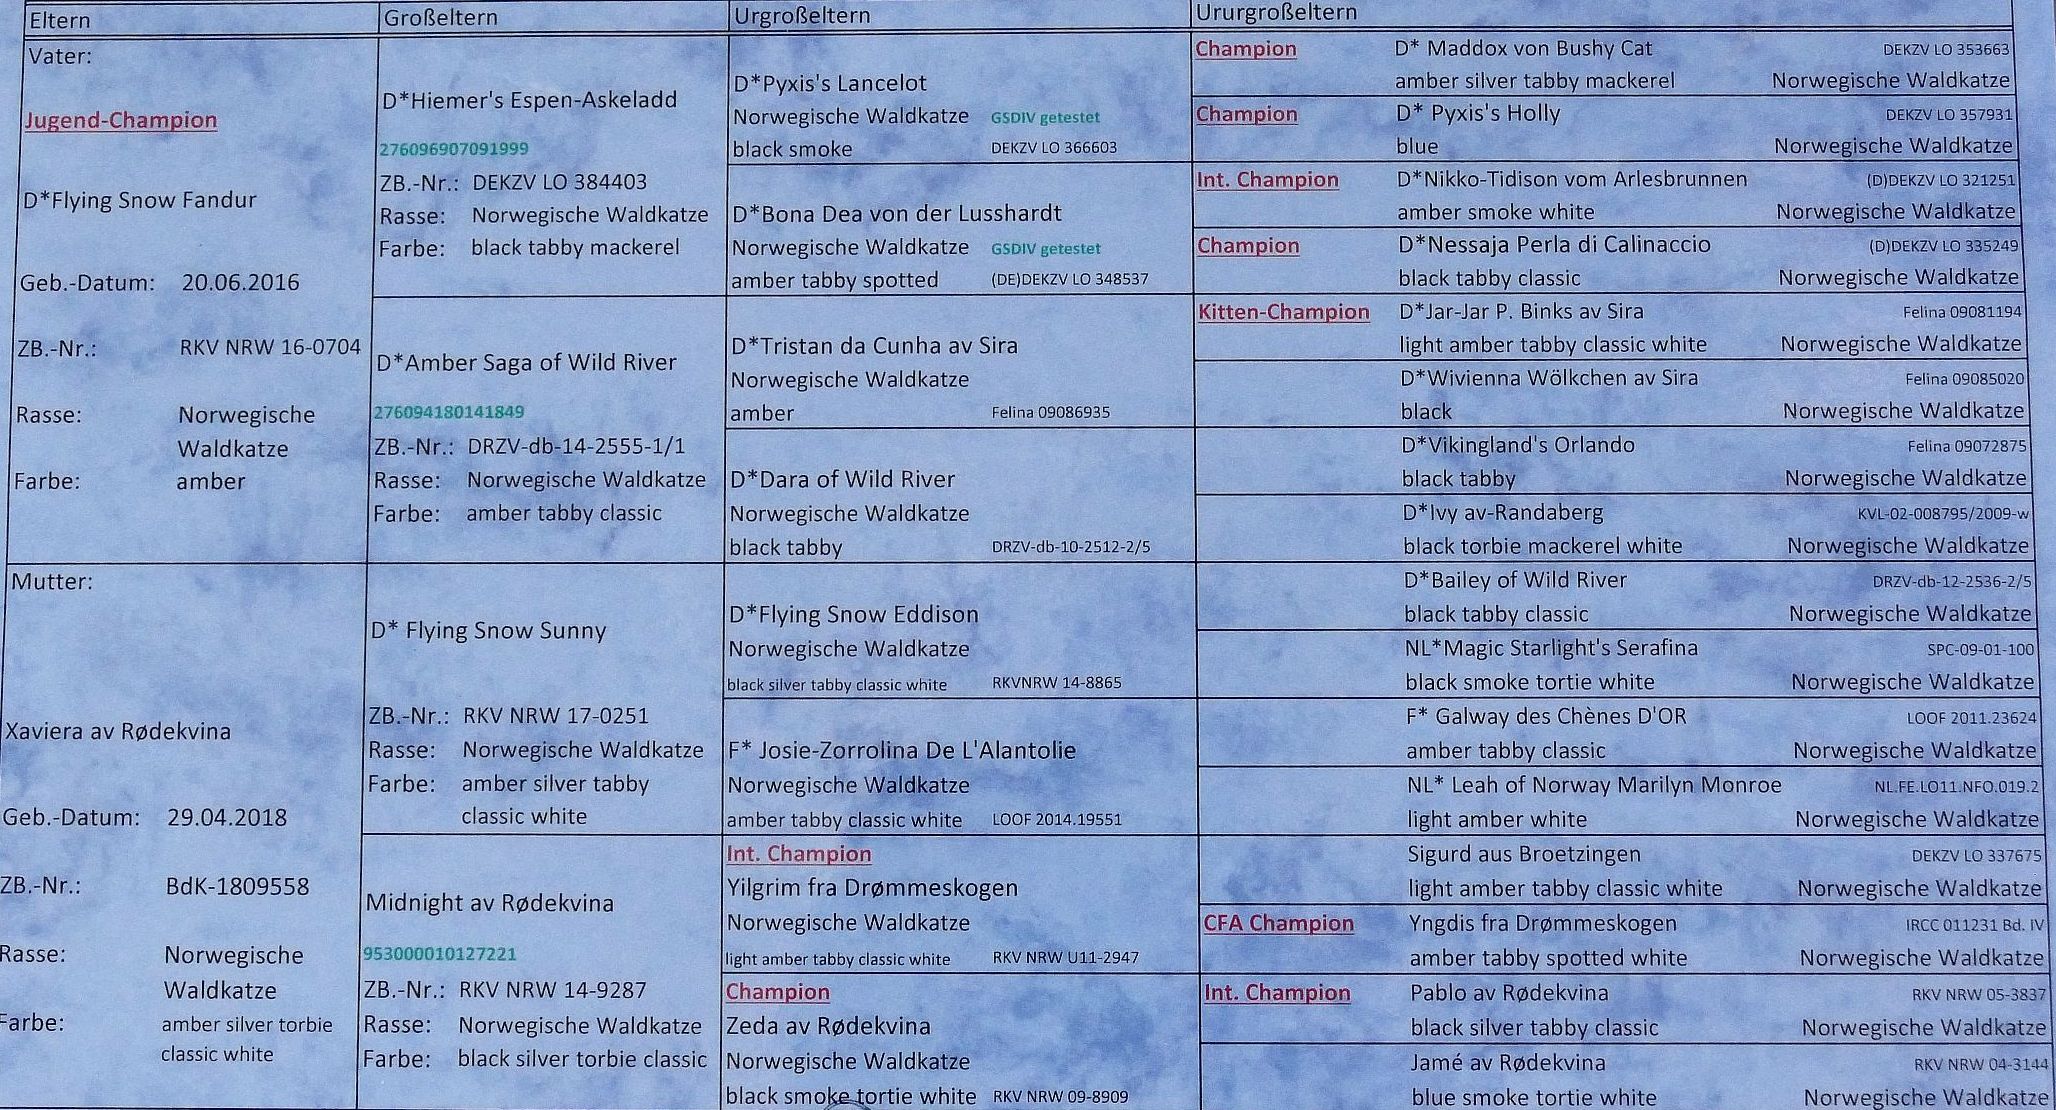 Eltern
Vater:
Jugend-Champion
D*Flying Snow Fandur
Geb.-Datum: 20.06.2016
ZB.-Nr.: RKV NRW 16-0704
Rasse: Norwegische
Waldkatze
Farbe: amber
Mutter:
Xaviera av Rødekvina
Geb.-Datum: 29.04.2018
ZB.-Nr.: BdK-1809558
Rasse: Norwegische
Waldkatze
Farbe: amber silver torbie
classic white
Großeltern
D*Hiemer's Espen-Askeladd
276096907091999
ZB.-Nr.: DEKZV LO 384403
Rasse: Norwegische Waldkatze
Farbe: black tabby mackerel
D*Amber Saga of Wild River
276094180141849
ZB.-Nr.: DRZV-db-14-2555-1/1
Rasse: Norwegische Waldkatze
Farbe: amber tabby classic
D* Flying Snow Sunny
ZB.-Nr.: RKV NRW 17-0251
Rasse: Norwegische Waldkatze
Farbe: amber silver tabby
classic white
Midnight av Rødekvina
953000010127221
ZB.-Nr.: RKV NRW 14-9287
Rasse: Norwegische Waldkatze
Farbe: black silver torbie classic
Urgroßeltern
D*Pyxis's Lancelot
Norwegische Waldkatze GSDIV getestet
black smoke DEKZV LO 366603
D*Bona Dea von der Lusshardt
Norwegische Waldkatze GSDIV getestet
amber tabby spotted (DE)DEKZV LO 348537
D*Tristan da Cunha av Sira
Norwegische Waldkatze
amber Felina 09086935
D*Dara of Wild River
Norwegische Waldkatze
black tabby DRZV-db-10-2512-2/5
D*Flying Snow Eddison
Norwegische Waldkatze
black silver tabby classic white RKVNRW 14-8865
F* Josie-Zorrolina De L'Alantolie
Norwegische Waldkatze
amber tabby classic white LOOF 2014.19551
Int. Champion
Yilgrim fra Drømmeskogen
Norwegische Waldkatze
light amber tabby classic white RKV NRW U11-2947
Champion
Zeda av Rødekvina
Norwegische Waldkatze
black smoke tortie white RKV NRW 09-8909
Ururgroßeltern
Champion D* Maddox von Bushy Cat DEKZV LO 353663
amber silver tabby mackerel Norwegische Waldkatze
Champion D* Pyxis's Holly DEKZV LO 357931
blue Norwegische Waldkatze
Int. Champion D*Nikko-Tidison vom Arlesbrunnen (D)DEKZV LO 321251
amber smoke white Norwegische Waldkatze
Champion D*Nessaja Perla di Calinaccio (D)DEKZV LO 335249
black tabby classic Norwegische Waldkatze
Kitten-Champion D*Jar-Jar P. Binks av Sira Felina 09081194
light amber tabby classic white Norwegische Waldkatze
D*Wivienna Wölkchen av Sira Felina 09085020
black Norwegische Waldkatze
D*Vikingland's Orlando Felina 09072875
black tabby Norwegische Waldkatze
D*Ivy av-Randaberg KVL-02-008795/2009-w
black torbie mackerel white Norwegische Waldkatze
D*Bailey of Wild River DRZV-db-12-2536-2/5
black tabby classic Norwegische Waldkatze
NL*Magic Starlight's Serafina SPC-09-01-100
black smoke tortie white Norwegische Waldkatze
F* Galway des Chènes D'OR LOOF 2011.23624
amber tabby classic Norwegische Waldkatze
NL* Leah of Norway Marilyn Monroe NL.FE.LO11.NFO.019.2
light amber white Norwegische Waldkatze
Sigurd aus Broetzingen DEKZV LO 337675
light amber tabby classic white Norwegische Waldkatze
CFA Champion Yngdis fra Drømmeskogen IRCC 011231 Bd. IV
amber tabby spotted white Norwegische Waldkatze
Int. Champion Pablo av Rødekvina RKV NRW 05-3837
black silver tabby classic Norwegische Waldkatze
Jamé av Rødekvina RKV NRW 04-3144
blue smoke tortie white Norwegische Waldkatze